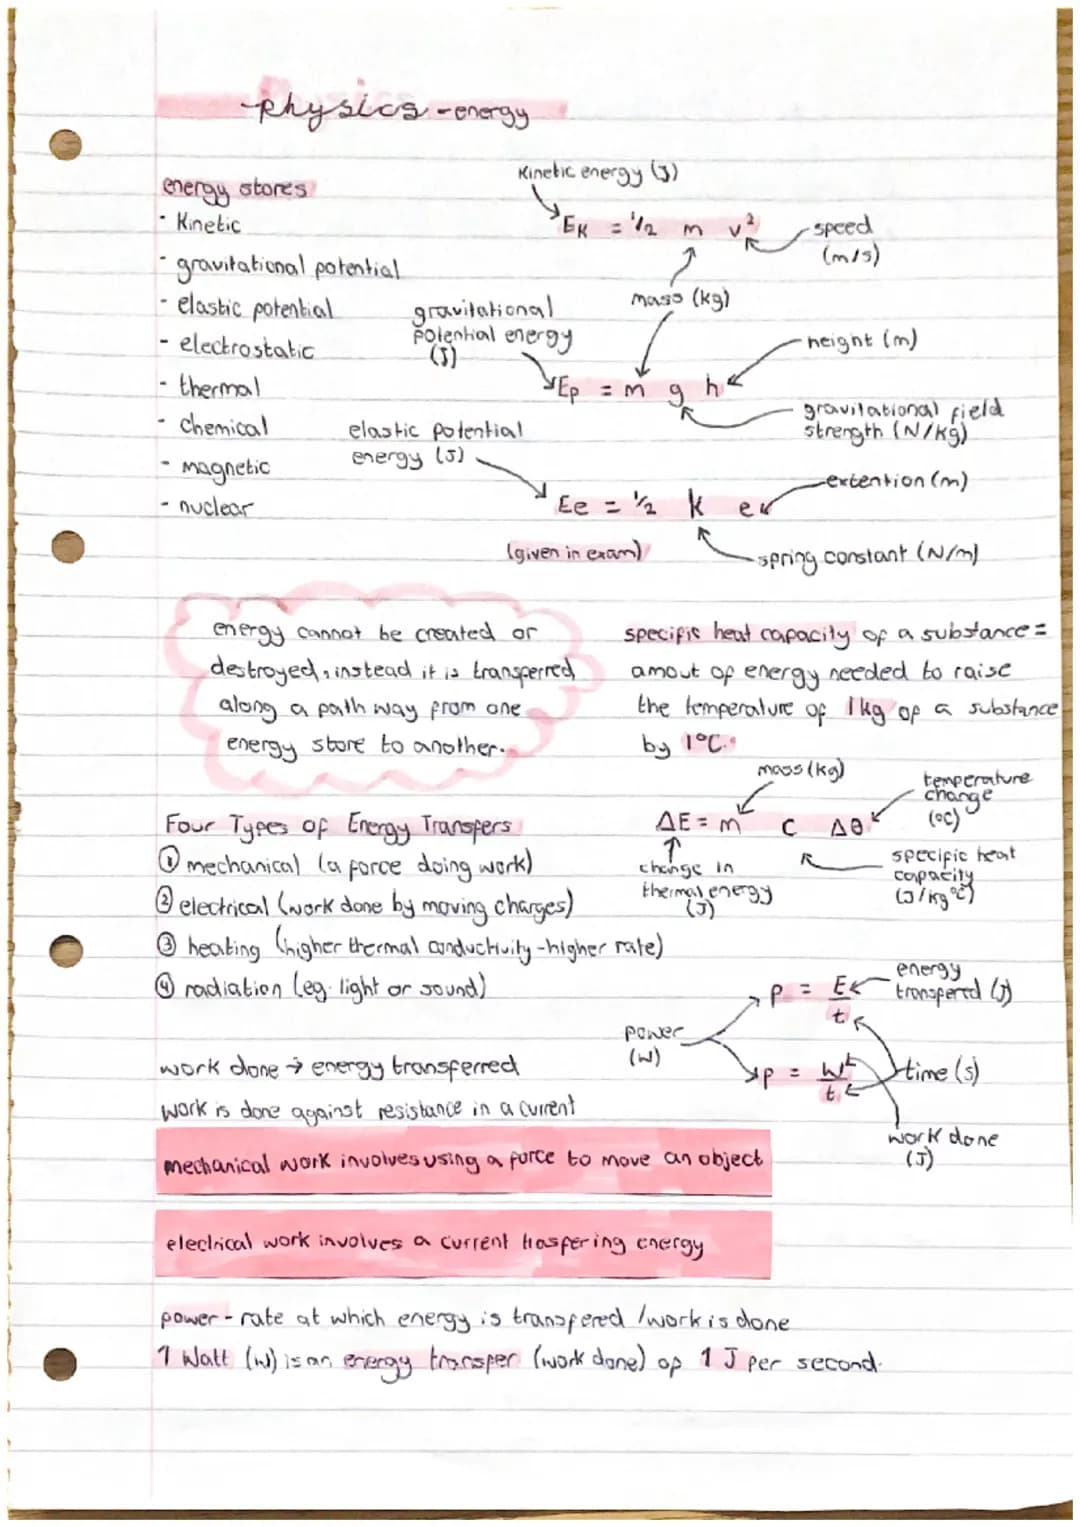 physics - energy
energy stores
· Kinetic
· gravitational potential
· elastic potential
- electrostatic
· thermal
· chemical
- magnetic
- nuclear
Kinetic energy (J)
EK = 1/2 m v²
speed
(m/s)
mass (kg)
gravitational
potential energy
(J)
Ep = m g h
height (m)
gravitational field
strength (N/kg)
elastic potential
energy (J)
Ee = 1/2 k e
extention (m)
(given in exam)
spring constant (N/m)
energy cannot be created or
destroyed, instead it is transferred
along a path way from one
energy store to another.
specific heat capacity of a substance =
amout of energy needed to raise
the temperature of 1kg of a substance
by 1°C.
mass (kg)
temperature
change
(°C)
ΔE = m c Δθ
change in
thermal energy
(J)
specific heat
capacity
(J/kg°C)
Four Types of Energy Transfers
① mechanical (a force doing work)
② electrical (work done by moving charges)
③ heating (higher thermal conductivity - higher rate)
④ radiation (eg. light or sound)
power
(W)
P = E
t
energy
transferd (J)
P = W
t
time (s)
work done
(J)
work done → energy transferred
work is done against resistance in a current
mechanical work involves using a force to move an object
electrical work involves a current trasfering energy
power - rate at which energy is transfered / work is done
1 Watt (W) is an energy transfer (work done) of 1 J per second.